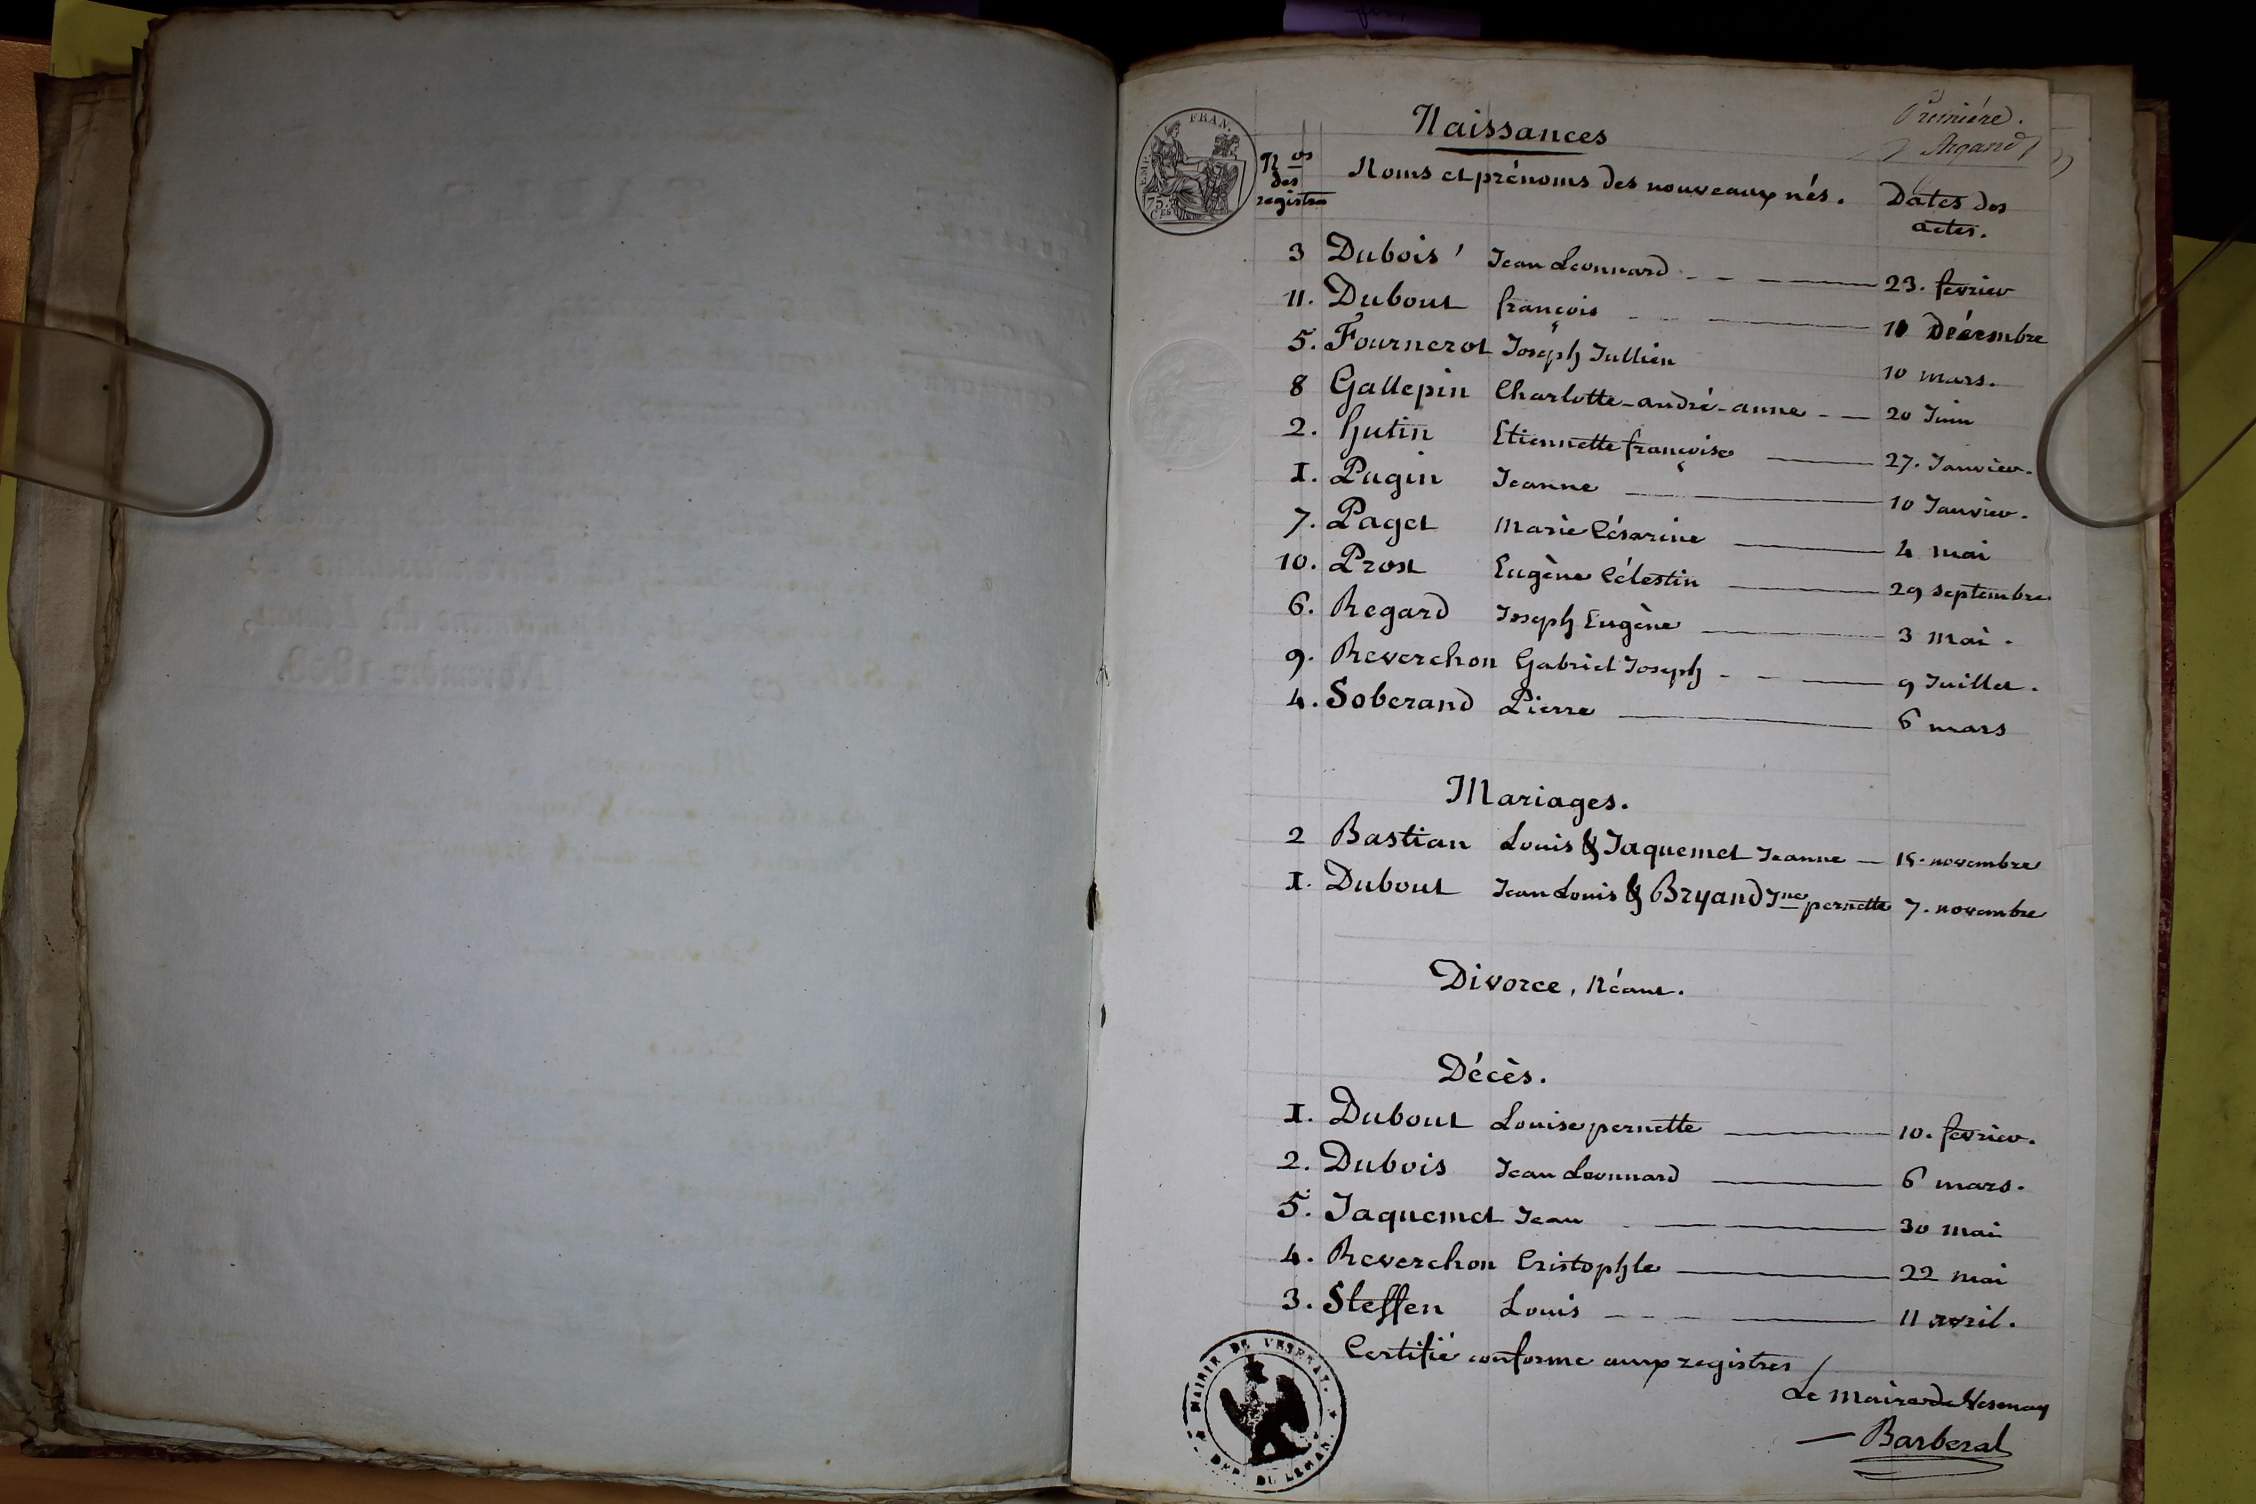 Première.
Argand
Naissances
Nos des registres
Noms et prénoms des nouveaux nés.
Dates des actes.
EMP. FRAN.
75. CES
3 Dubois Jean Leonnard 23. fevrier
11. Dubout françois 10 Décembre
5. Fournerot Joseph Jullien 10 mars.
8 Gallepin Charlotte-andré-anne 20 Juin
2. Hutin Etiennette françoise 27. Janvier.
1. Pagin Jeanne 10 Janvier.
7. Paget Marie Césarine 4 mai
10. Prost Eugène Célestin 29 septembre
6. Regard Joseph Eugène 3 mai.
9. Reverchon Gabriel Joseph 9 Juillet.
4. Soberand Pierre 6 mars
Mariages.
2 Bastian Louis & Jaquemet Jeanne 15. novembre
1. Dubout Jean Louis & Bryand Jne pernette 7. novembre
Divorce, Néant.
Décès.
1. Dubout Louise pernette 10. fevrier.
2. Dubois Jean Leonnard 6 mars.
5. Jaquemet Jean 30 mai
4. Reverchon Cristophle 22 mai
3. Steffen Louis 11 avril.
Certifié conforme aux registres
Le Maire de Vesenay
Barberat
MAIRIE DE VESENAY.
DEP. DU LEMAN.